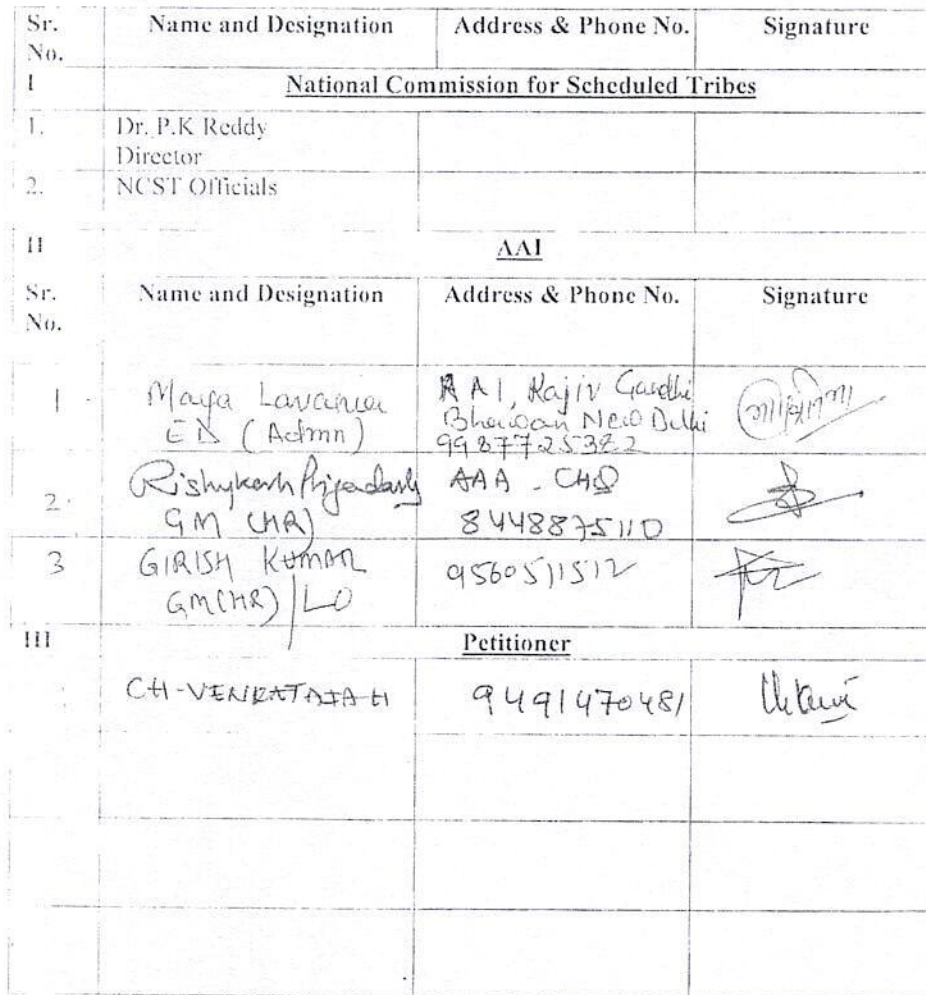 Sr. No. Name and Designation Address & Phone No. Signature
I National Commission for Scheduled Tribes
1. Dr. P.K Reddy
Director
2. NCST Officials
II AAI
Sr. No. Name and Designation Address & Phone No. Signature
1 Maya Lavania AAI, Rajiv Gandhi
ED (Admn) Bhawan New Delhi
9987725382
2. Rishykesh AAA - CHQ
GM (HR) 8448875110
3 GIRISH KUMAR 9560511512
GM(HR)/LO
III Petitioner
CH-VENKATAIAH 9491470481